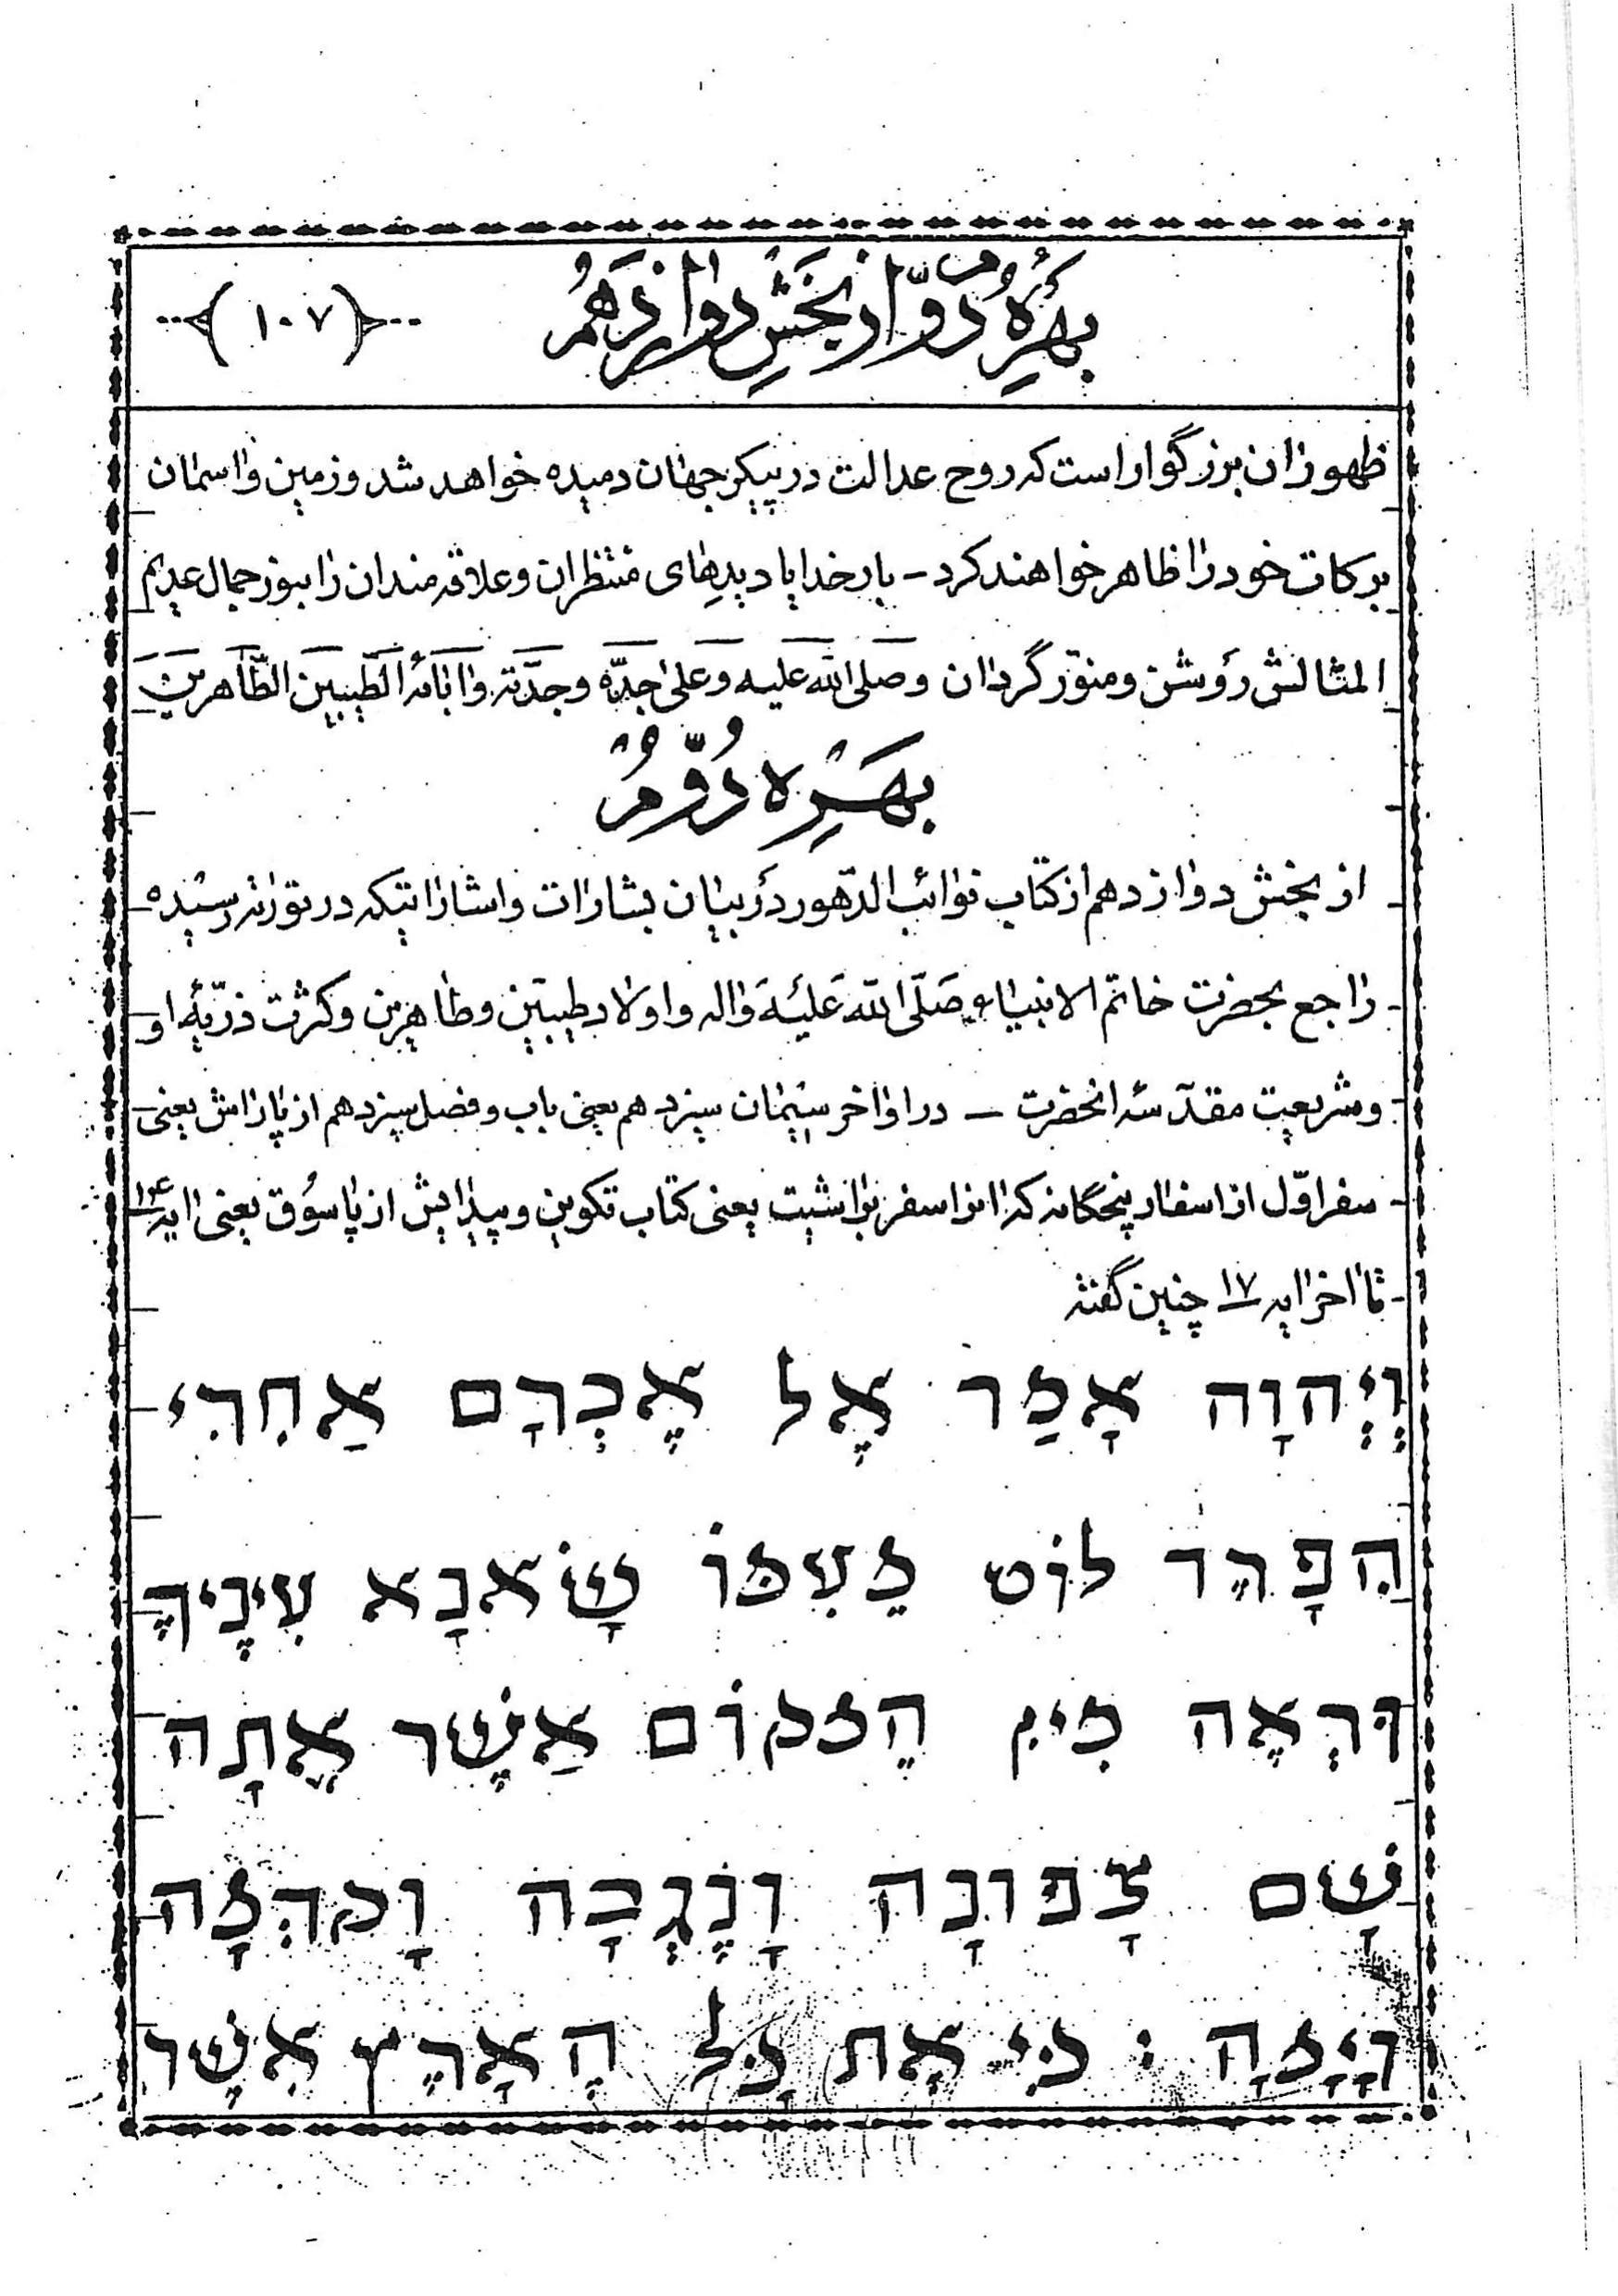 بهرهٔ دوّم از بخش دوازدهم
(۱۰۷)
ظهور ان بزرگوار است که روح عدالت در پیکر جهان دمیده خواهد شد و زمین و اسمان
برکات خود را ظاهر خواهند کرد - بار خدایا دیدهای منتظران و علاقه مندان را بنور جمال عدیم
المثالش روشن و منوّر گردان و صَلی الله علیه وَعَلی جدّه و جدّته و اابائه الطّیبینَ الطّاهرینَ
بهَره دُوّمُ
از بخش دوازدهم از کتاب نوائب الدّهور در بیان بشارات و اشاراتیکه در توراته رسیده
راجع بحضرت خاتم الانبیاء صَلّی الله عَلیه وَاله و اولاد طیبین و طاهرین و کثرت ذرّیهٔ او
و شریعت مقدّسهٔ انحضرت - در اواخر سیمان سیزدهم یعنی باب و فصل سیزدهم از پاراش یعنی
سفر اوّل از اسفار پنجگانه که اانرا سفر براشیت یعنی کتاب تکوین و پیدایش از پاسُوق یعنی اایه ۱۴
تا ااخر اایه ۱۷ چنین گفته
וְיְהוָה אָמַר אֶל אֶבְרָם אַחִרִי
הִפָּרֶד לוֹט מֵעִמּוֹ שָׂאנָא עִינֶיךָ
וּרְאֶה מִימ הֶמקוֹם אַשֶׁר אֲתָה
שָׁם צָפוֹנָה וָנֶגְבָה וָקדְמָה
וָיָמָה : כּי אֶת כָּל הֶאָרֶץ אִשֶׁר